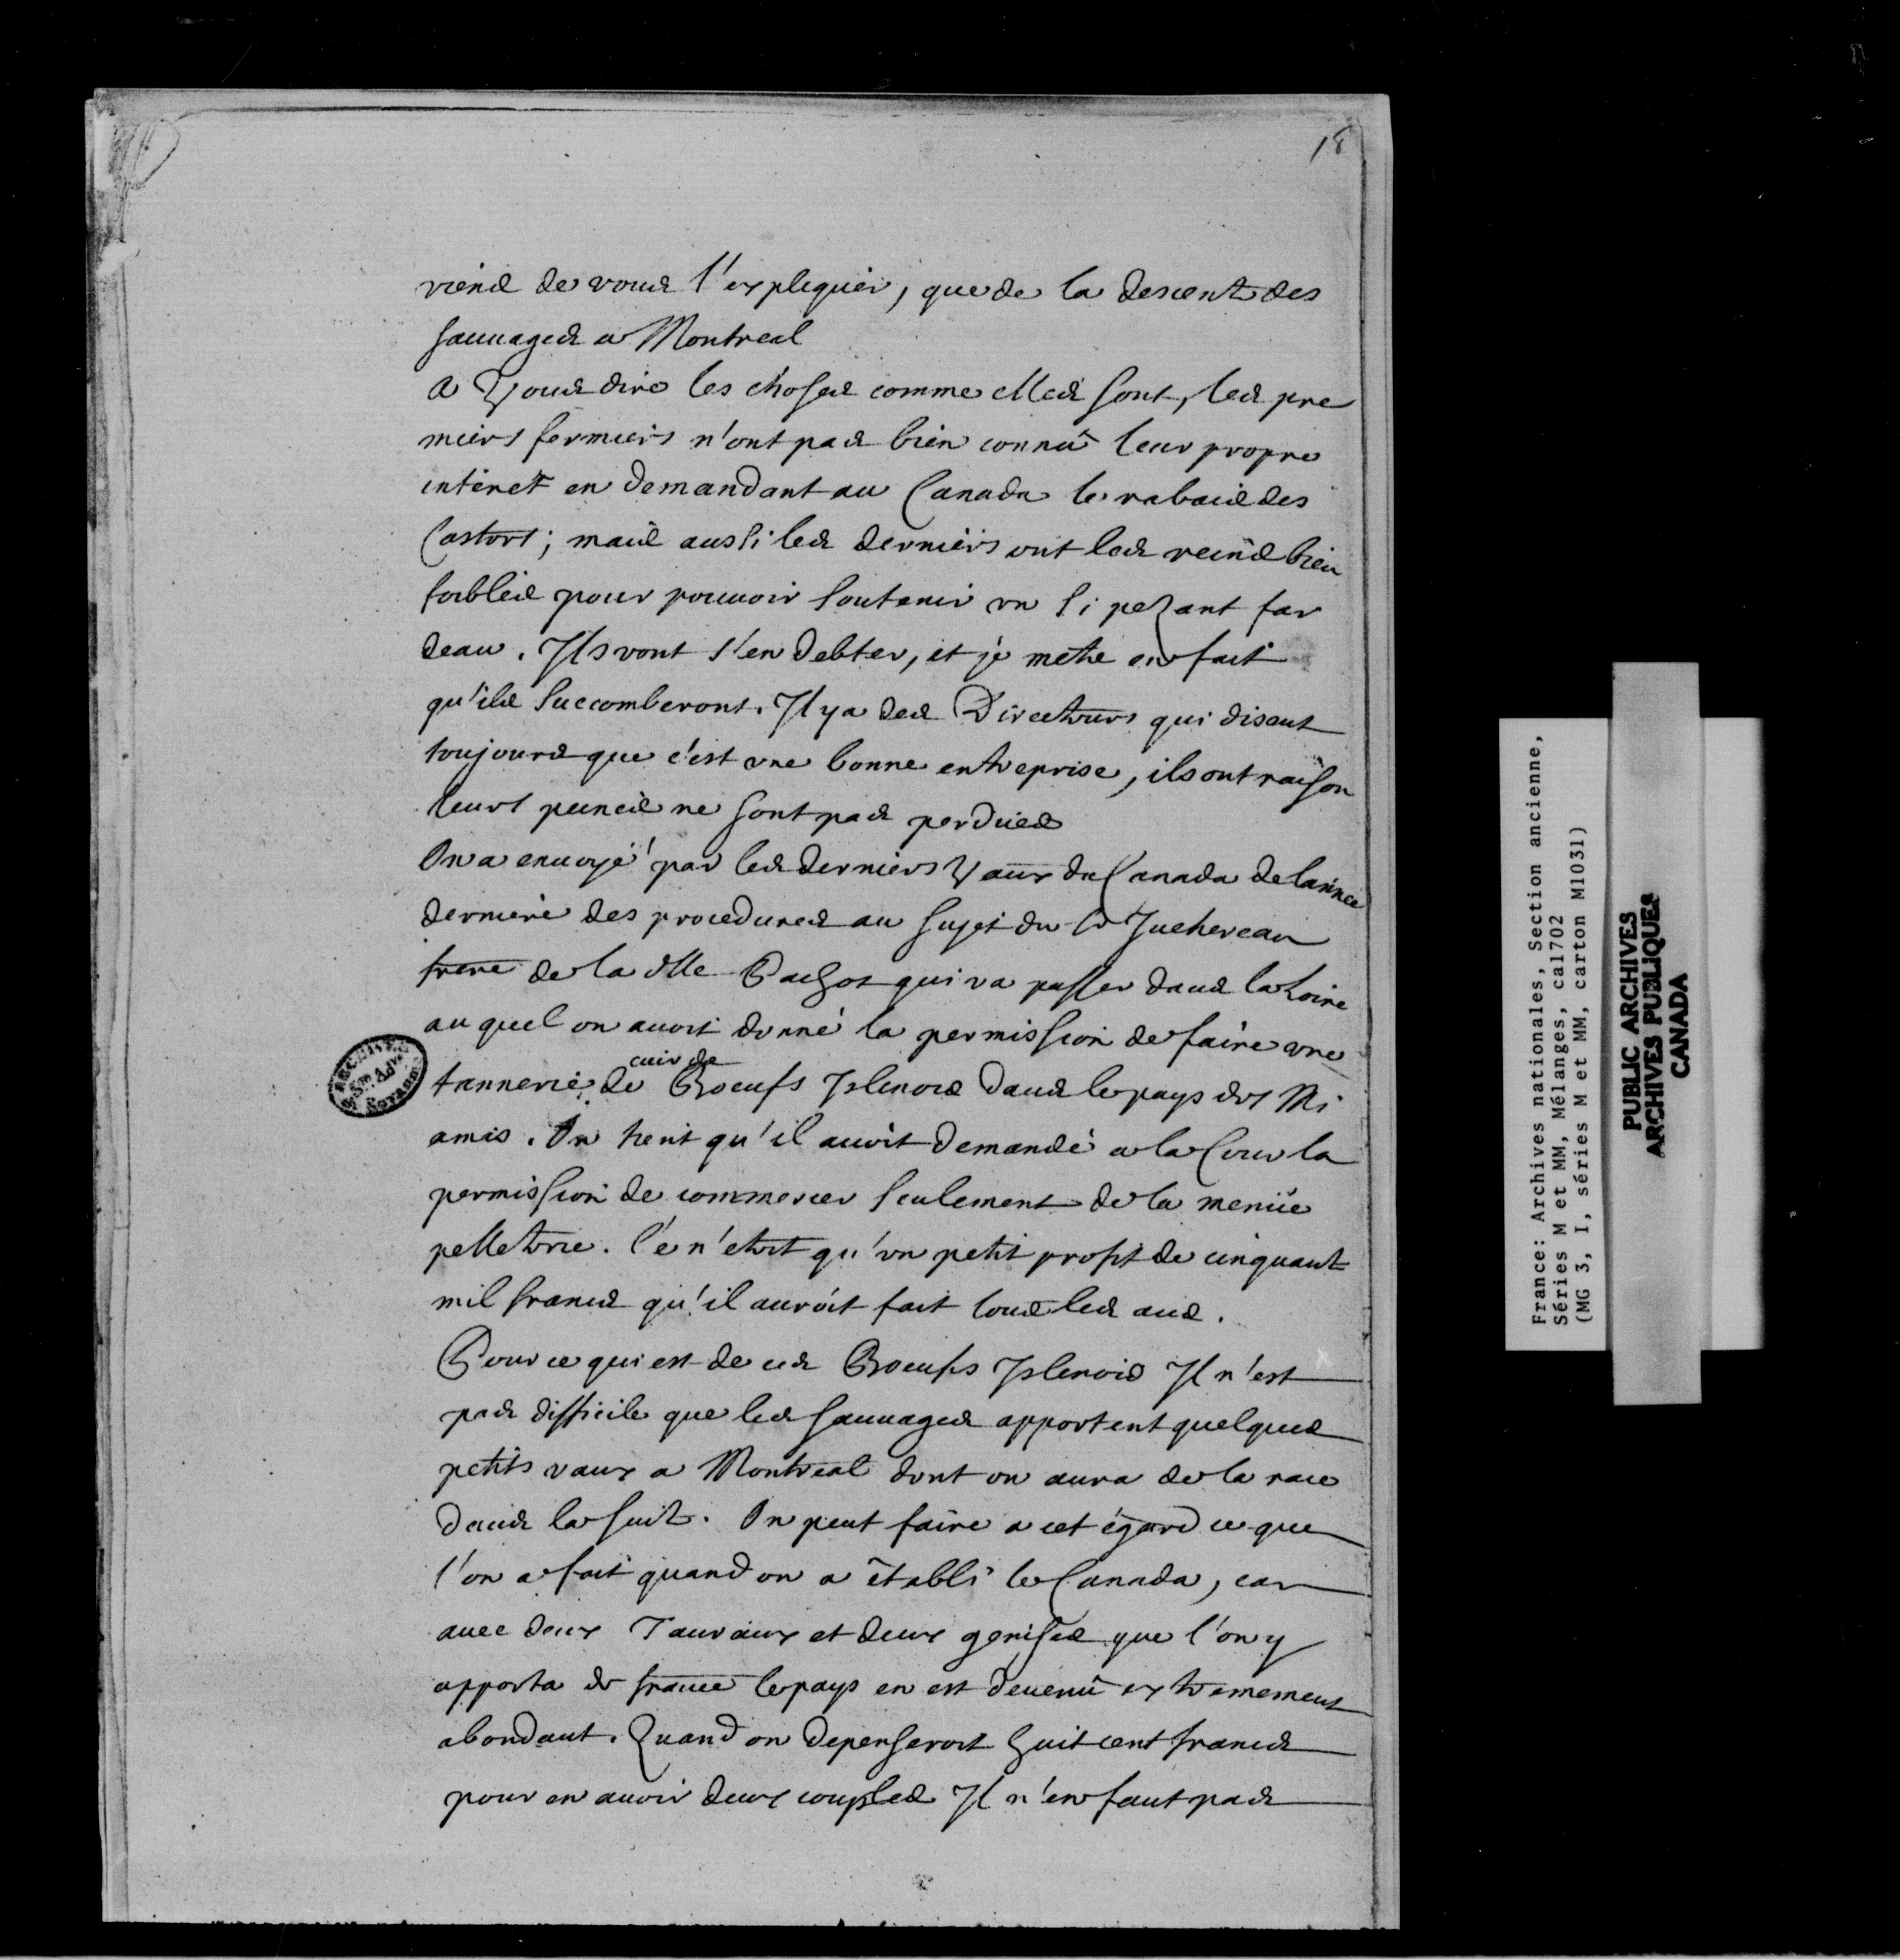 18
viens de vous l'expliquer, que de la descente des
sauuages a Montreal
a Vous dire les choses comme elles sont, les pre
miers fermiers n'ont pas bien connû leur propre
interêt en demandant au Canada le rabais des
Castors ; mais aussi les derniers ont les reins bien
foibles pour pouuoir soutenir un si pezant far
deau. Ils vont s'en debter, et je mets en fait
qu'ils succomberont. Il y a des Directeurs qui disent
toujours que c'est une bonne entreprise, ils ont raison
leurs peines ne sont pas perdues
On a enuoyé par les derniers Vaux du Canada de l'année
derniere des procedures au sujet du Sr Juchereau
frere de la dlle Pachot qui va passer dans la Loire
au quel on auoit donné la permission de faire une
tannerie de cuir de Boeufs Islinois dans le pays des Mi
amis. On tient qu'il auoit demandé a la Cour la
permission de commercer seulement de la menüe
pelleterie. Ce n'etoit qu'un petit profit de cinquante
mil francs qu'il auroit fait tous les ans.
Pour ce qui est de ces Boeufs Islinois Il n'est
pas difficile que les sauuages apportent quelques
petits vaux a Montreal dont on aura de la race
dans la suite. On peut faire a cet égard ce que
l'on a fait quand on a établi le Canada, car
auec deux Tauraux et deux genises que l'on y
apporta de france le pays en est deuenû extremement
abondant. Quand on depenseroit huit cent francs
pour en auoir deux couples Il n'en faut pas
France: Archives nationales, Section ancienne,
Séries M et MM, Mélanges, ca1702
(MG 3, I, séries M et MM, carton M1031)
PUBLIC ARCHIVES
ARCHIVES PUBLIQUES
CANADA